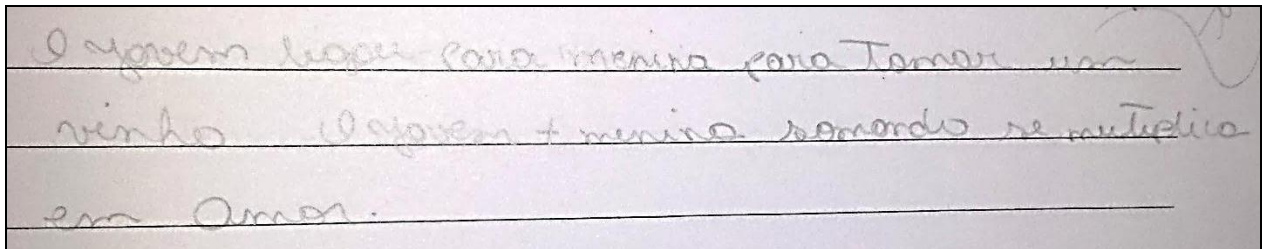 O yovem ligou para menina para Tomar um
vinho O yovem + menina somando se mutiplica
em amor.